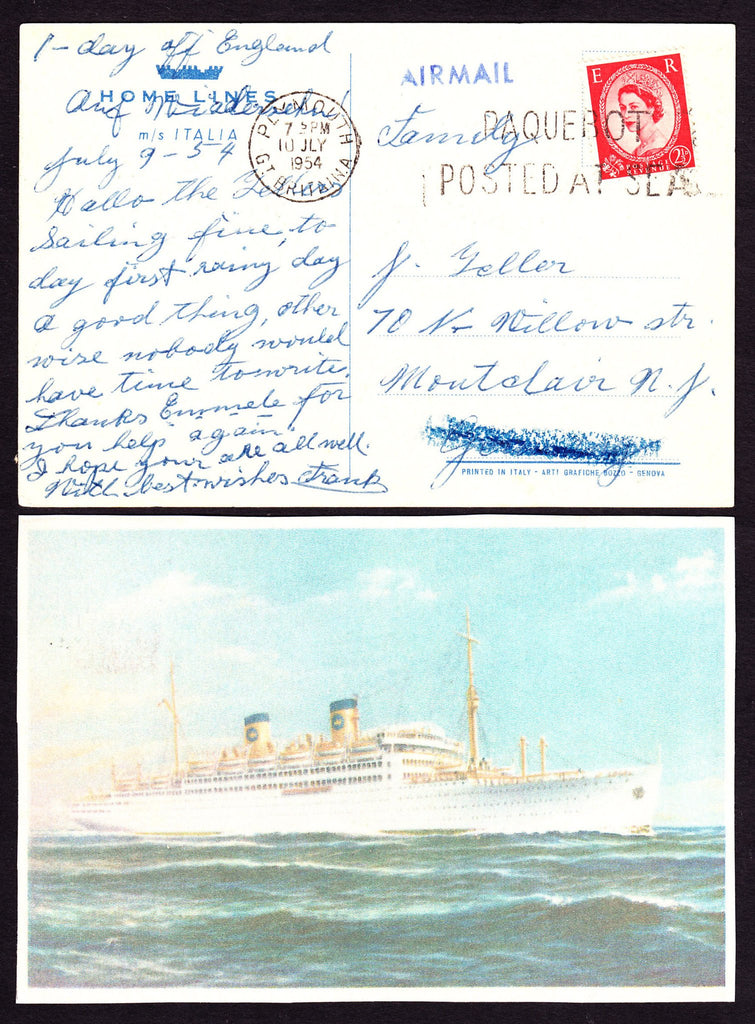 1-day off England
HOME LINES
Auf Wiedersehn!
m/s ITALIA
July 9-54
Hallo the Gellers
Sailing fine, to
day first rainy day
a good thing, other
wise nobody would
have time to write.
Thanks Emmele for
your help again.
I hope your are all well.
With best wishes Frank
AIRMAIL
PLYMOUTH
7 PM
10 JLY
1954
GT. BRITAIN
PAQUEBOT
POSTED AT SEA
E R
POSTAGE
REVENUE
2½
Family
J. Geller
70 N. Willow str.
Montclair N.J.
PRINTED IN ITALY - ARTI GRAFICHE BOZZO - GENOVA